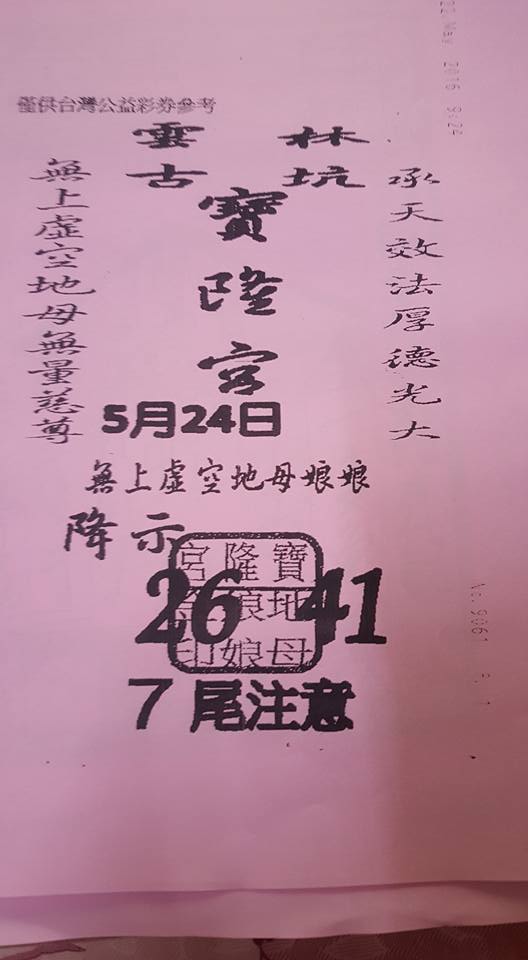 22 May 2016 9:24
僅供台灣公益彩券參考
雲林
古坑
寶隆宮
承天效法厚德光大
無上虛空地母無量慈尊
5月24日
無上虛空地母娘娘
降示
寶地母
隆娘娘
宮 印
26 41
7尾注意
No. 9061 P. 1